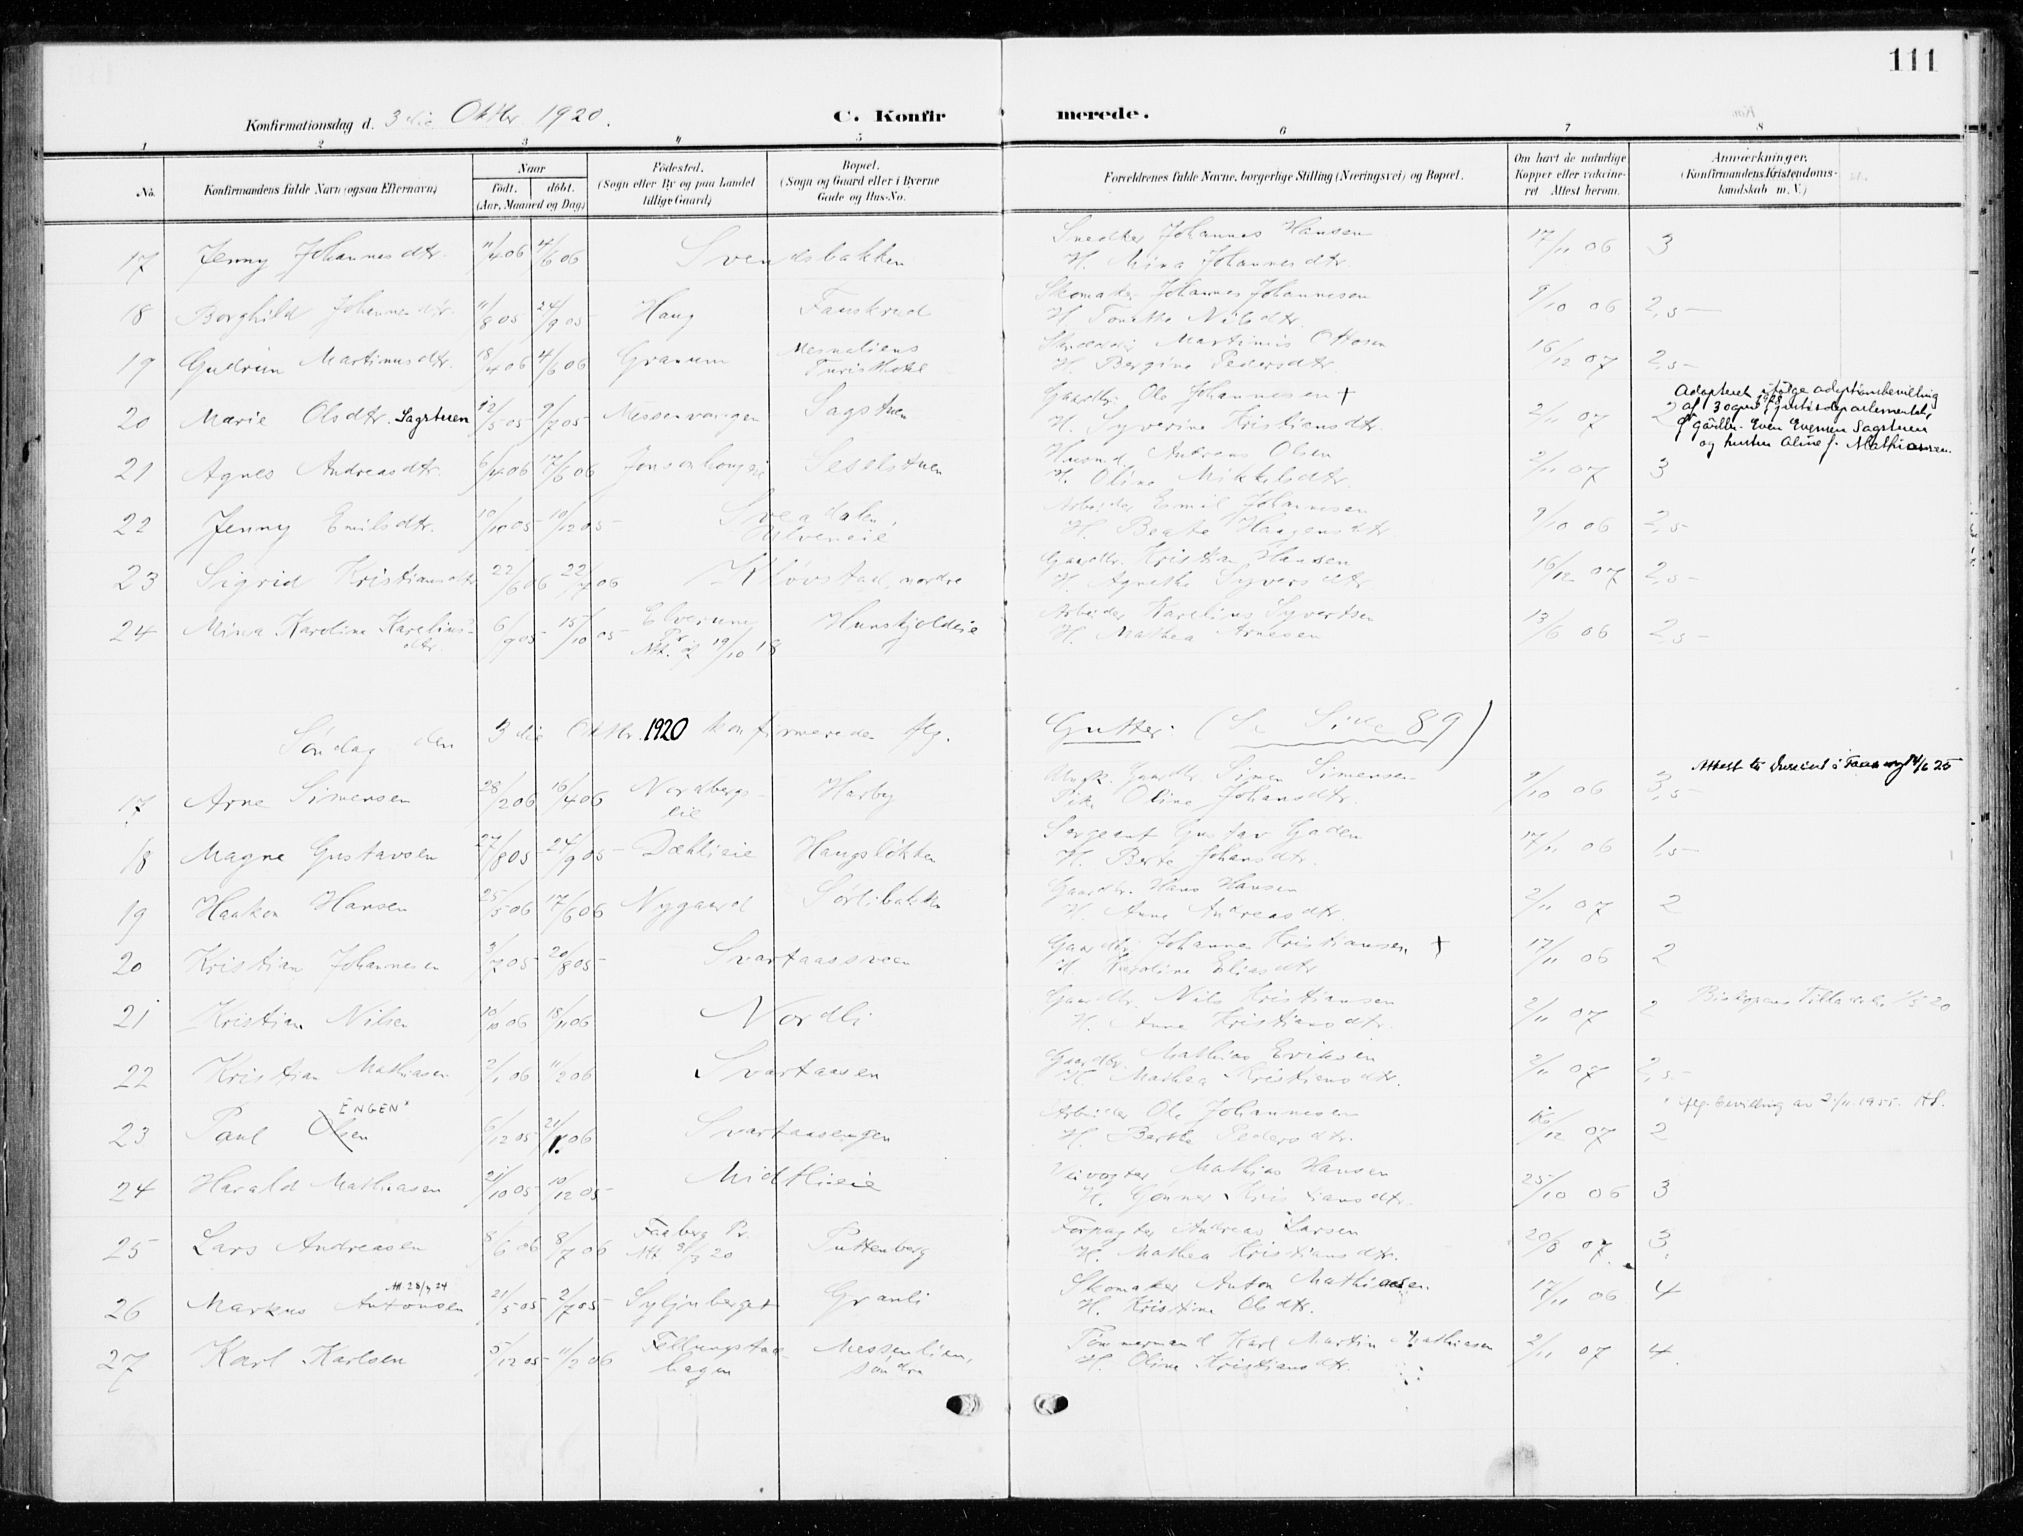 111
Konfirmationsdag d. 3die Oktbr 1920. C. Konfirmerede.
1 2 3 4 5 6 7 8
No. Konfirmandens fulde Navn (ogsaa Efternavn) Naar født. døbt. (Aar, Maaned og Dag) Fødested. (Sogn eller By og paa Landet tillige Gaard) Bopæl. (Sogn og Gaard eller i Byerne Gade og Hus-No. Forældrenes fulde Navne, borgerlige Stilling (Næringsvei) og Bopæl. Om havt de naturlige Kopper eller vaccineret. Attest herom. Anmærkninger. (Konfirmandens Kristendomskundskab m. V.)
17 Jenny Johannesdtr. 11/4 06 4/6 06 Svendsbakken Snedker Johannes Hansen 17/11 06 3
H. Mina Johannesdtr.
18 Borghild Johannesdtr. 11/8 05 24/9 05 Haug Skomaker Johannes Johannesen 9/10 06 2,5
H. Nilsdtr.
19 Gudrun Martinusdtr. 18/4 06 4/6 06 Granum Mesnaliens Turisthotel Martinus Ottosen 16/12 07 2,5
H. Bergine Pedersdtr.
20 Marie Olsdtr. Sagstuen 12/5 05 9/7 05 Messenvangen Sagstuen Gaardbr. Ole Johannesen + 2/11 07 2
H. Syverine Kristiansdtr.
Adopteret ifølge adoptionsbevilling
af 3 august justisdepartementet,
gårdbr. Even Evensen Sagstuen
og hustru Aline f. Mathiassen.
21 Agnes Andreasdtr. 6/4 06 17/6 06 Seselstuen Husmd. Andreas Olsen 2/11 07 3
H. Oline Mikkelsdtr.
22 Jenny Emilsdtr. 10/10 05 10/12 05 Sveadalen, Ulveneie Arbeider Emil Johannesen 9/10 06 2,5
H. Beate Haagensdtr.
23 Sigrid Kristiansdtr 22/6 06 22/7 06 Kløvstad, nordre Gaardbr. Kristian Hansen 16/12 07 2,5
H. Agnethe Syversdtr.
24 Mina Karoline Kareliusdtr. 6/9 05 15/10 05 Elverum Pr. Att. af 19/10 18 Hunskjoldeie Arbeider Karelius Syvertsen 13/6 06 2,5
H. Mathea Arnesen
Søndag den 3die Oktbr. 1920 konfirmeredes flg. Gutter. (Se Side 89)
17 Arne Simensen 28/2 06 16/4 06 Nordbergseie Harby Ungk. Gaardbr. Simen Simensen 9/10 06 3,5
Pike Oline Johansdtr.
18 Magne Gustavsen 27/8 05 24/9 05 Dæhlieie Haugsløkken Sergeant Gustav Gaden 17/11 06 1,5
H. Berte Johansdtr.
19 Haakon Hansen 25/5 06 17/6 06 Nygaard Sørlibakken Gaardbr. Hans Hansen 2/11 07 2
H. Anne Andreasdtr.
20 Kristian Johannesen 3/7 05 20/8 05 Svartaassveen Gaardbr. Johannes Kristiansen + 17/11 06 2
H. Karoline Eliasdtr
21 Kristian Nilsen 10/10 06 18/11 06 Nordli Gaardbr. Nils Kristiansen 2/11 07 2 Biskopens Tilladelse 1/5 20
H. Anne Kristiansdtr.
22 Kristian Mathiasen 2/1 06 11/2 06 Svartaasen Gaardbr. Mathias Eriksen 2/11 07 2,5
H. Mathea Kristiansdtr.
23 Paul Olsen ENGEN* 6/12 05 21/1 06 Svartaasengen Arbeider Ole Johannesen 16/12 07 2 * flg. bevilling av 21/11.1955.
H. Berthe Pedersdtr.
24 Harald Mathiasen 21/10 05 10/12 05 Midtlieie Veivogter Mathias Hansen 25/10 06 3
H. Gunner Kristiansdtr.
25 Lars Andreasen 8/6 06 8/7 06 Faaberg Pr. Att 9/3 20 Puttenberg Forpagter Andreas Larsen 20/8 07 3
H. Mathea Kristiansdtr.
26 Markus Antonsen 21/5 05 2/7 05 Syljuberget Granli Skomaker Anton Mathiassen 17/11 06 4
H. Kristine Olsdtr.
27 Karl Karlsen 5/12 05 11/2 06 Fællungstadhagen Messenlien, søndre Tømmermand Karl Martin Mathiasen 2/11 07 4
H. Oline Kristiansdtr.